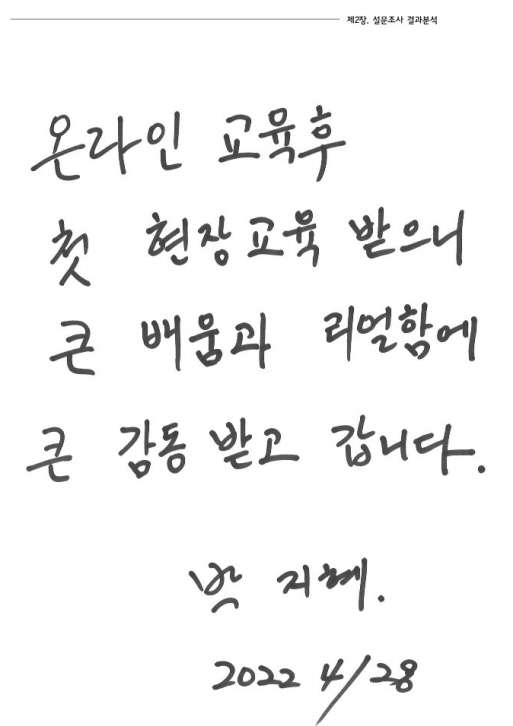 제2장. 설문조사 결과분석
온라인 교육후
첫 현장교육 받으니
큰 배움과 리얼함에
큰 감동 받고 갑니다.
박 지혜.
2022 4/28